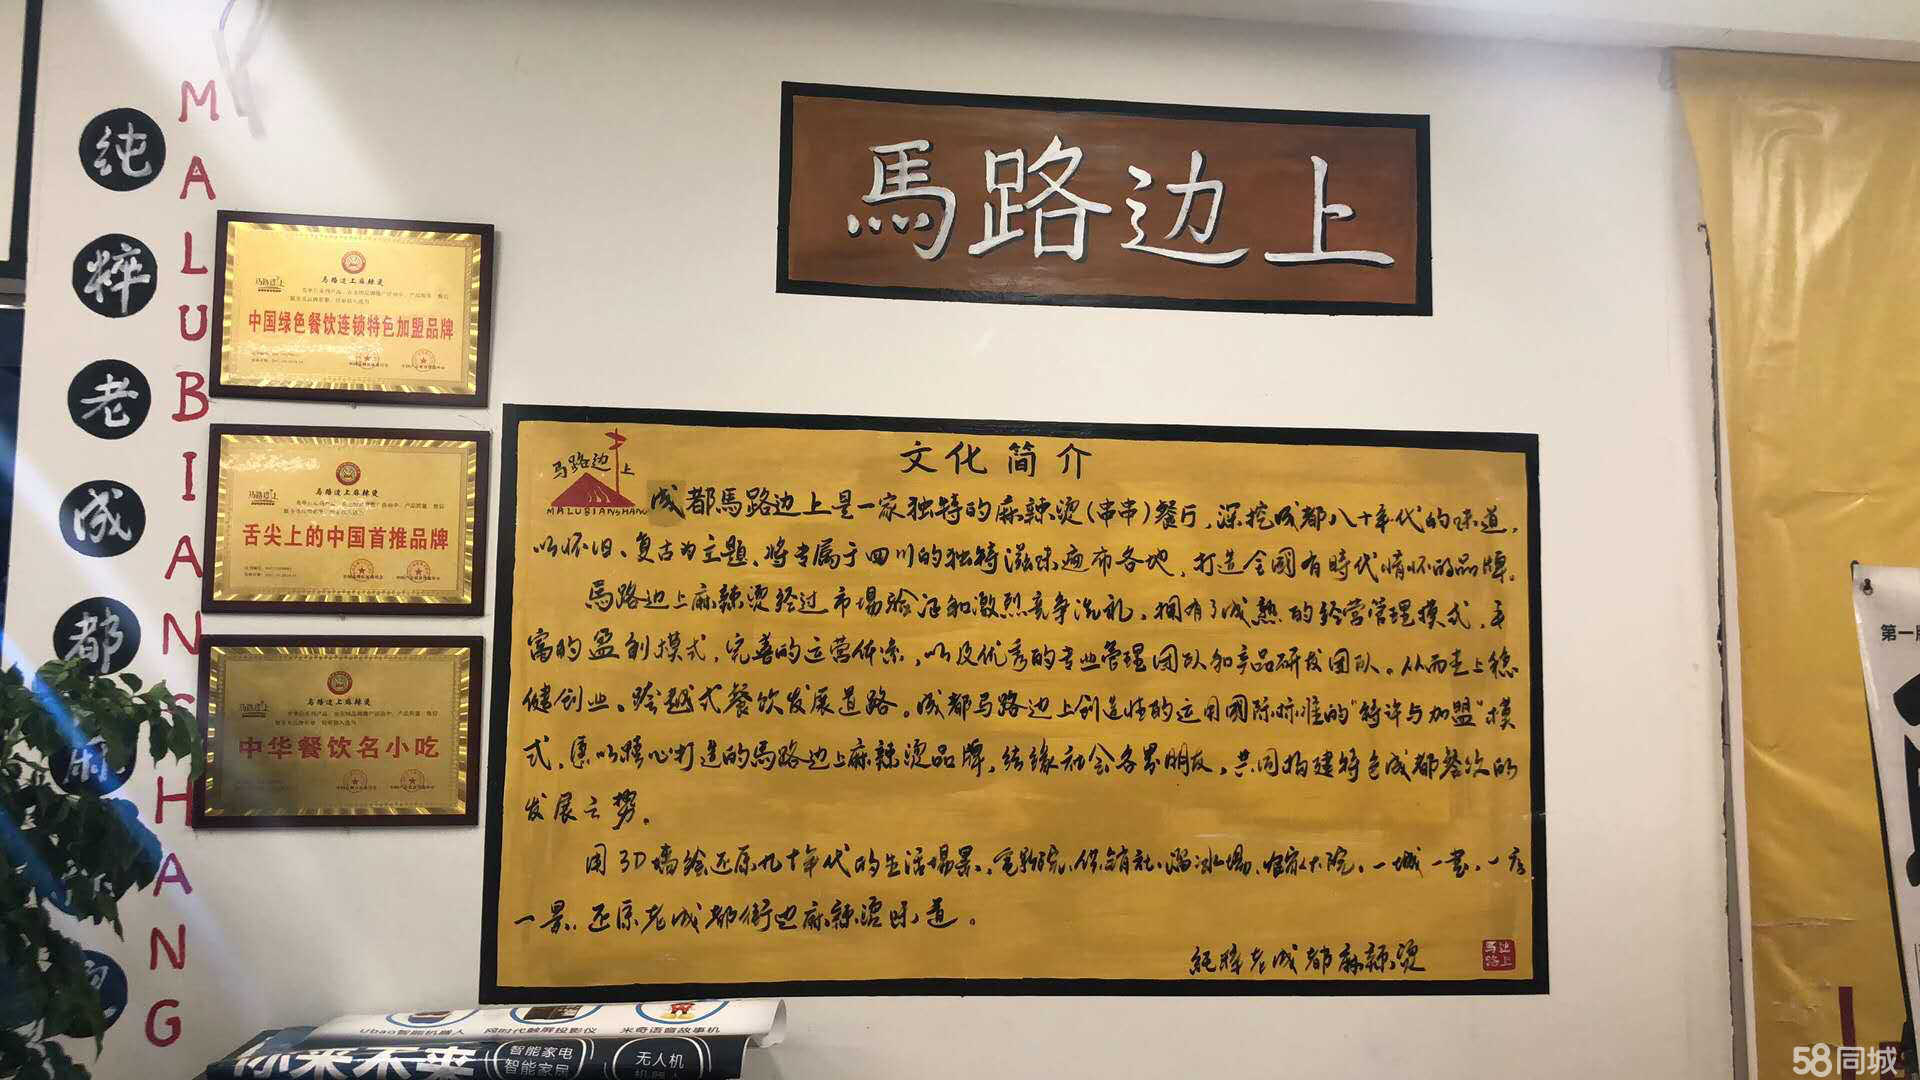 馬路边上
纯粹老成都麻辣烫
MALUBIANSHANG
马路边上
马路边上麻辣烫
中国绿色餐饮连锁特色加盟品牌
马路边上
马路边上麻辣烫
舌尖上的中国首推品牌
马路边上
马路边上麻辣烫
中华餐饮名小吃
马路边上
MALUBIANSHANG
文化简介
成都馬路边上是一家独特的麻辣烫(串串)餐厅，深挖成都八十年代的味道，
以怀旧、复古为主题、将专属于四川的独特滋味遍布各地，打造全國有時代情怀的品牌。
馬路边上麻辣烫经过市場验证和激烈竞争洗礼，拥有了成熟的经营管理模式，丰
富的盈利模式，完善的运营体系，以及优秀的专业管理团队和产品研发团队。从而走上稳
健创业。跨越式餐饮发展道路。成都马路边上创造性的运用國际标准的“特许与加盟”模
式，愿以精心打造的馬路边上麻辣烫品牌，结缘社会各界朋友，共同构建特色成都餐饮的
发展之势。
用3D墙绘还原九十年代的生活場景，电影院、供销社、溜冰場、居家大院，一城一畫，一店
一景，还原老成都街边麻辣烫味道。
純粹老成都麻辣烫
馬路边上
Ubao智能机器人 同时代触屏投影仪 米奇语音故事机
你来不来 智能家电 无人机
智能家居 机器人
第一
58同城